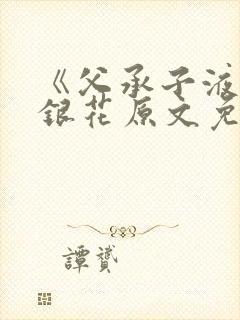 《父承子液
銀花原文免
譚贇